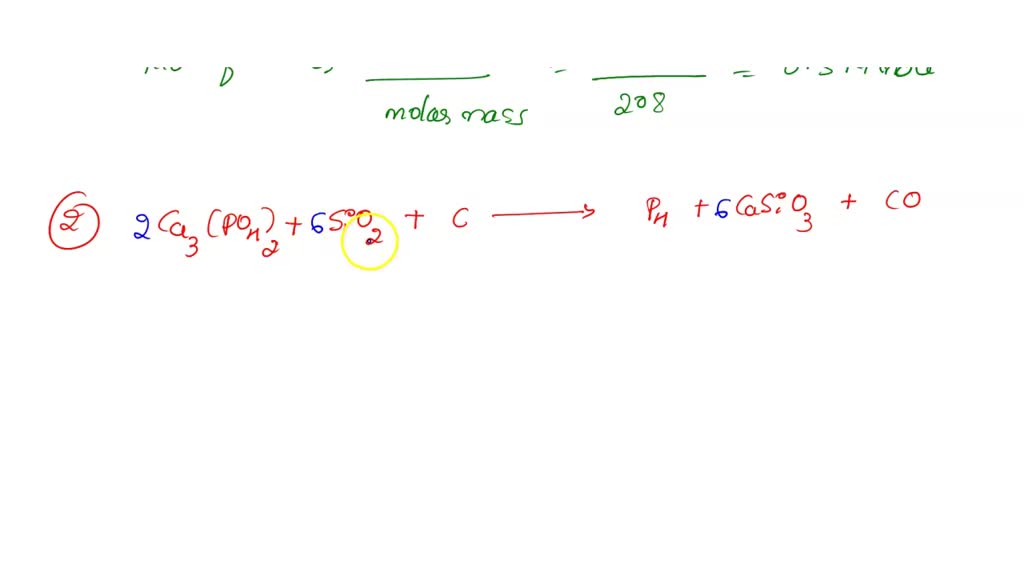 = =
molar mass 208
② 2Ca₃(PO₄)₂ + 6SiO₂ + C → P₄ + 6CaSiO₃ + CO